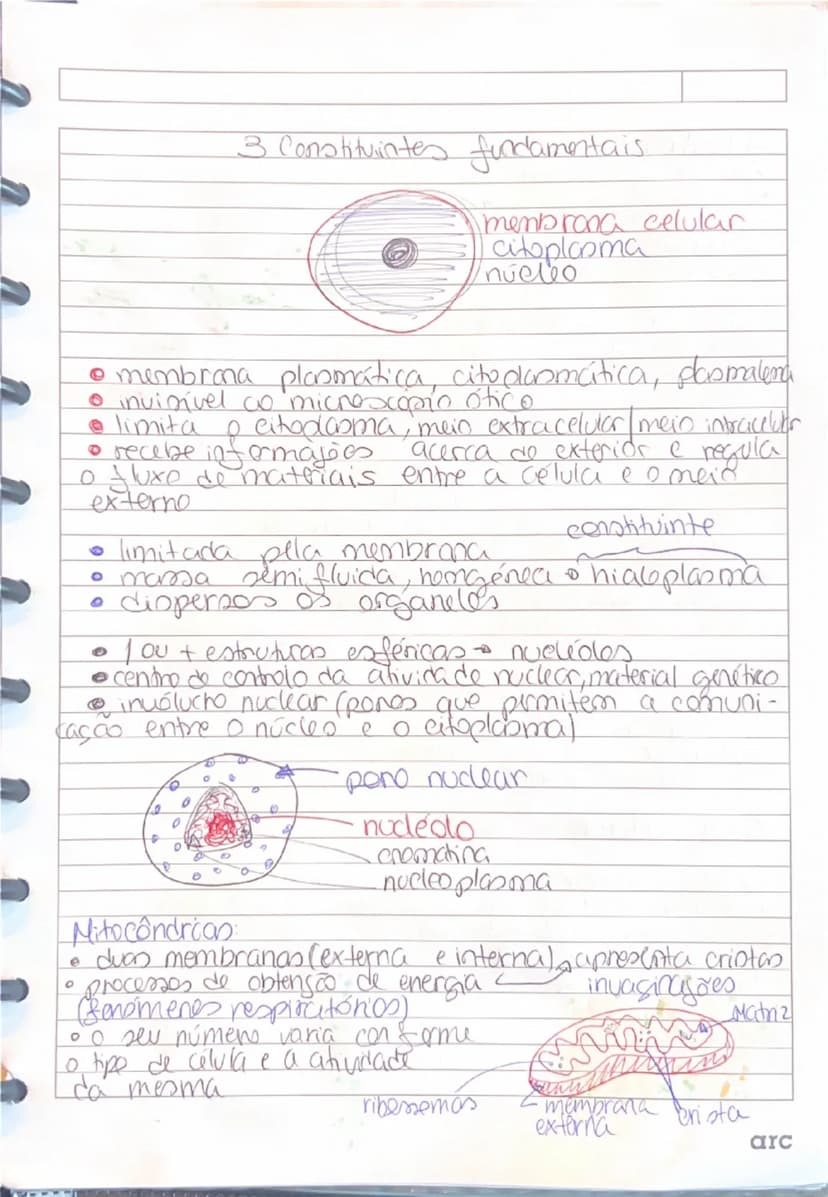 3 Constituintes fundamentais
membrana celular
citoplasma
núcleo
membrana plasmática, citoplasmática, plasmalema
invisível ao microscópio ótico
limita o citoplasma, meio extracelular/meio intracelular
recebe informações acerca do exterior e regula
o fluxo de materiais entre a célula e o meio
externo
constituinte
limitada pela membrana
massa semifluida, homogénea → hialoplasma
dispersos os organelos
1 ou + estruturas esféricas → nucléolos
centro de controlo da atividade nuclear, material genético
invólucro nuclear (poros que permitem a comuni-
cação entre o núcleo e o citoplasma)
poro nuclear
nucléolo
cromatina
nucleoplasma
Mitocôndrias:
• duas membranas (externa e interna) → apresenta cristas
• processos de obtenção de energia invaginações
(fenómenos respiratórios)
Matriz
• o seu número varia conforme
o tipo de célula e a atividade
da mesma
ribossomas
membrana
externa
crista
arc